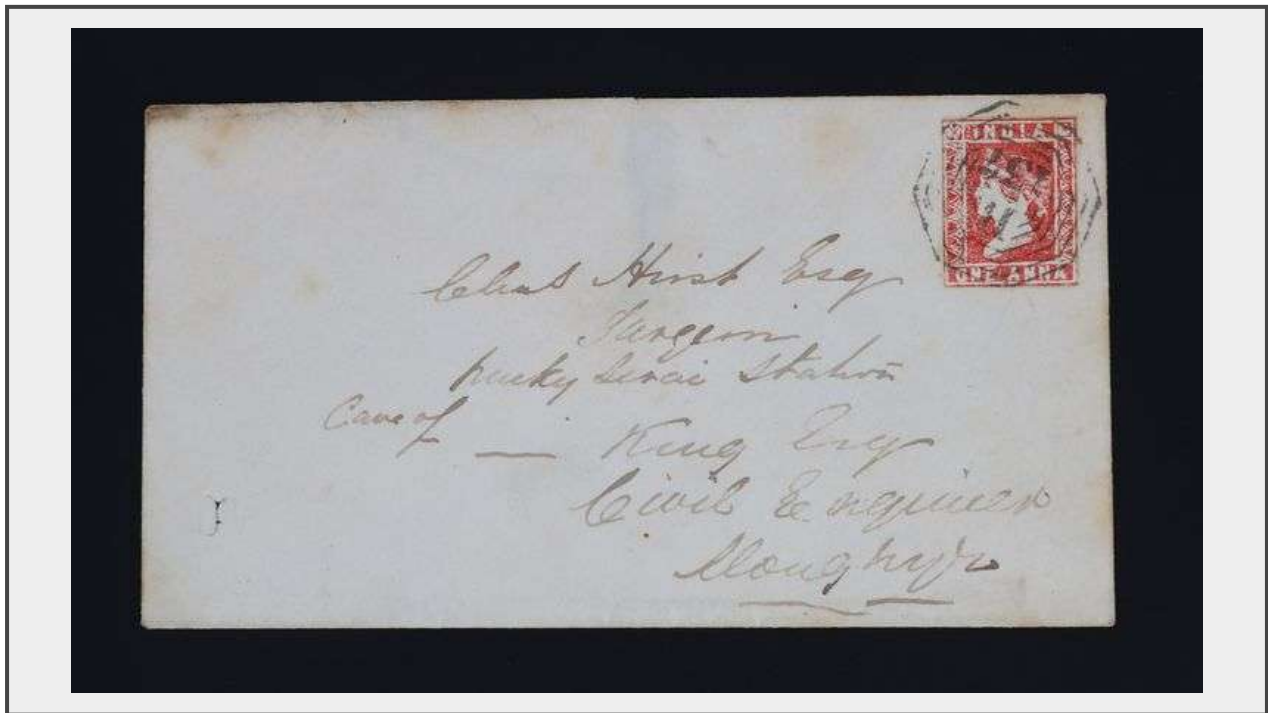 INDIA
ONE ANNA
Chas Hirst Esq
Surgeon
Lucky Serai Station
Care of — King Esq
Civil Engineer
Monghyr